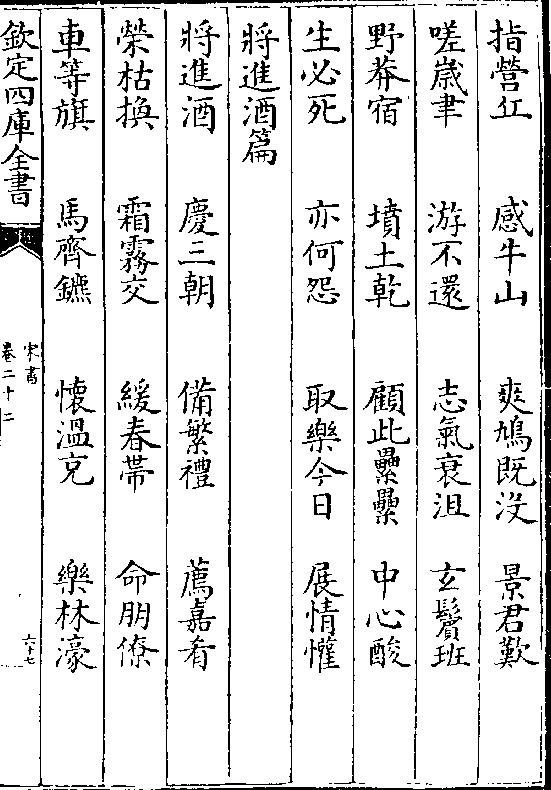 指營丘 感牛山 爽鳩既沒 景君歎
嗟嵗聿 游不還 志氣衰沮 玄鬢班
野莽宿 墳土乾 顧此纍纍 中心酸
生必死 亦何怨 取樂今日 展情懽
將進酒篇
將進酒 慶三朝 備繁禮 薦嘉肴
榮枯換 霜霧交 緩春帶 命朋僚
車等旗 馬齊鑣 懷溫克 樂林濠
欽定四庫全書
宋書
卷二十二
六十七